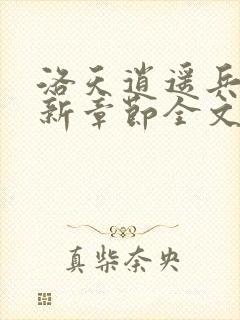 洛天逍遥兵
新章节全文
真柴奈央